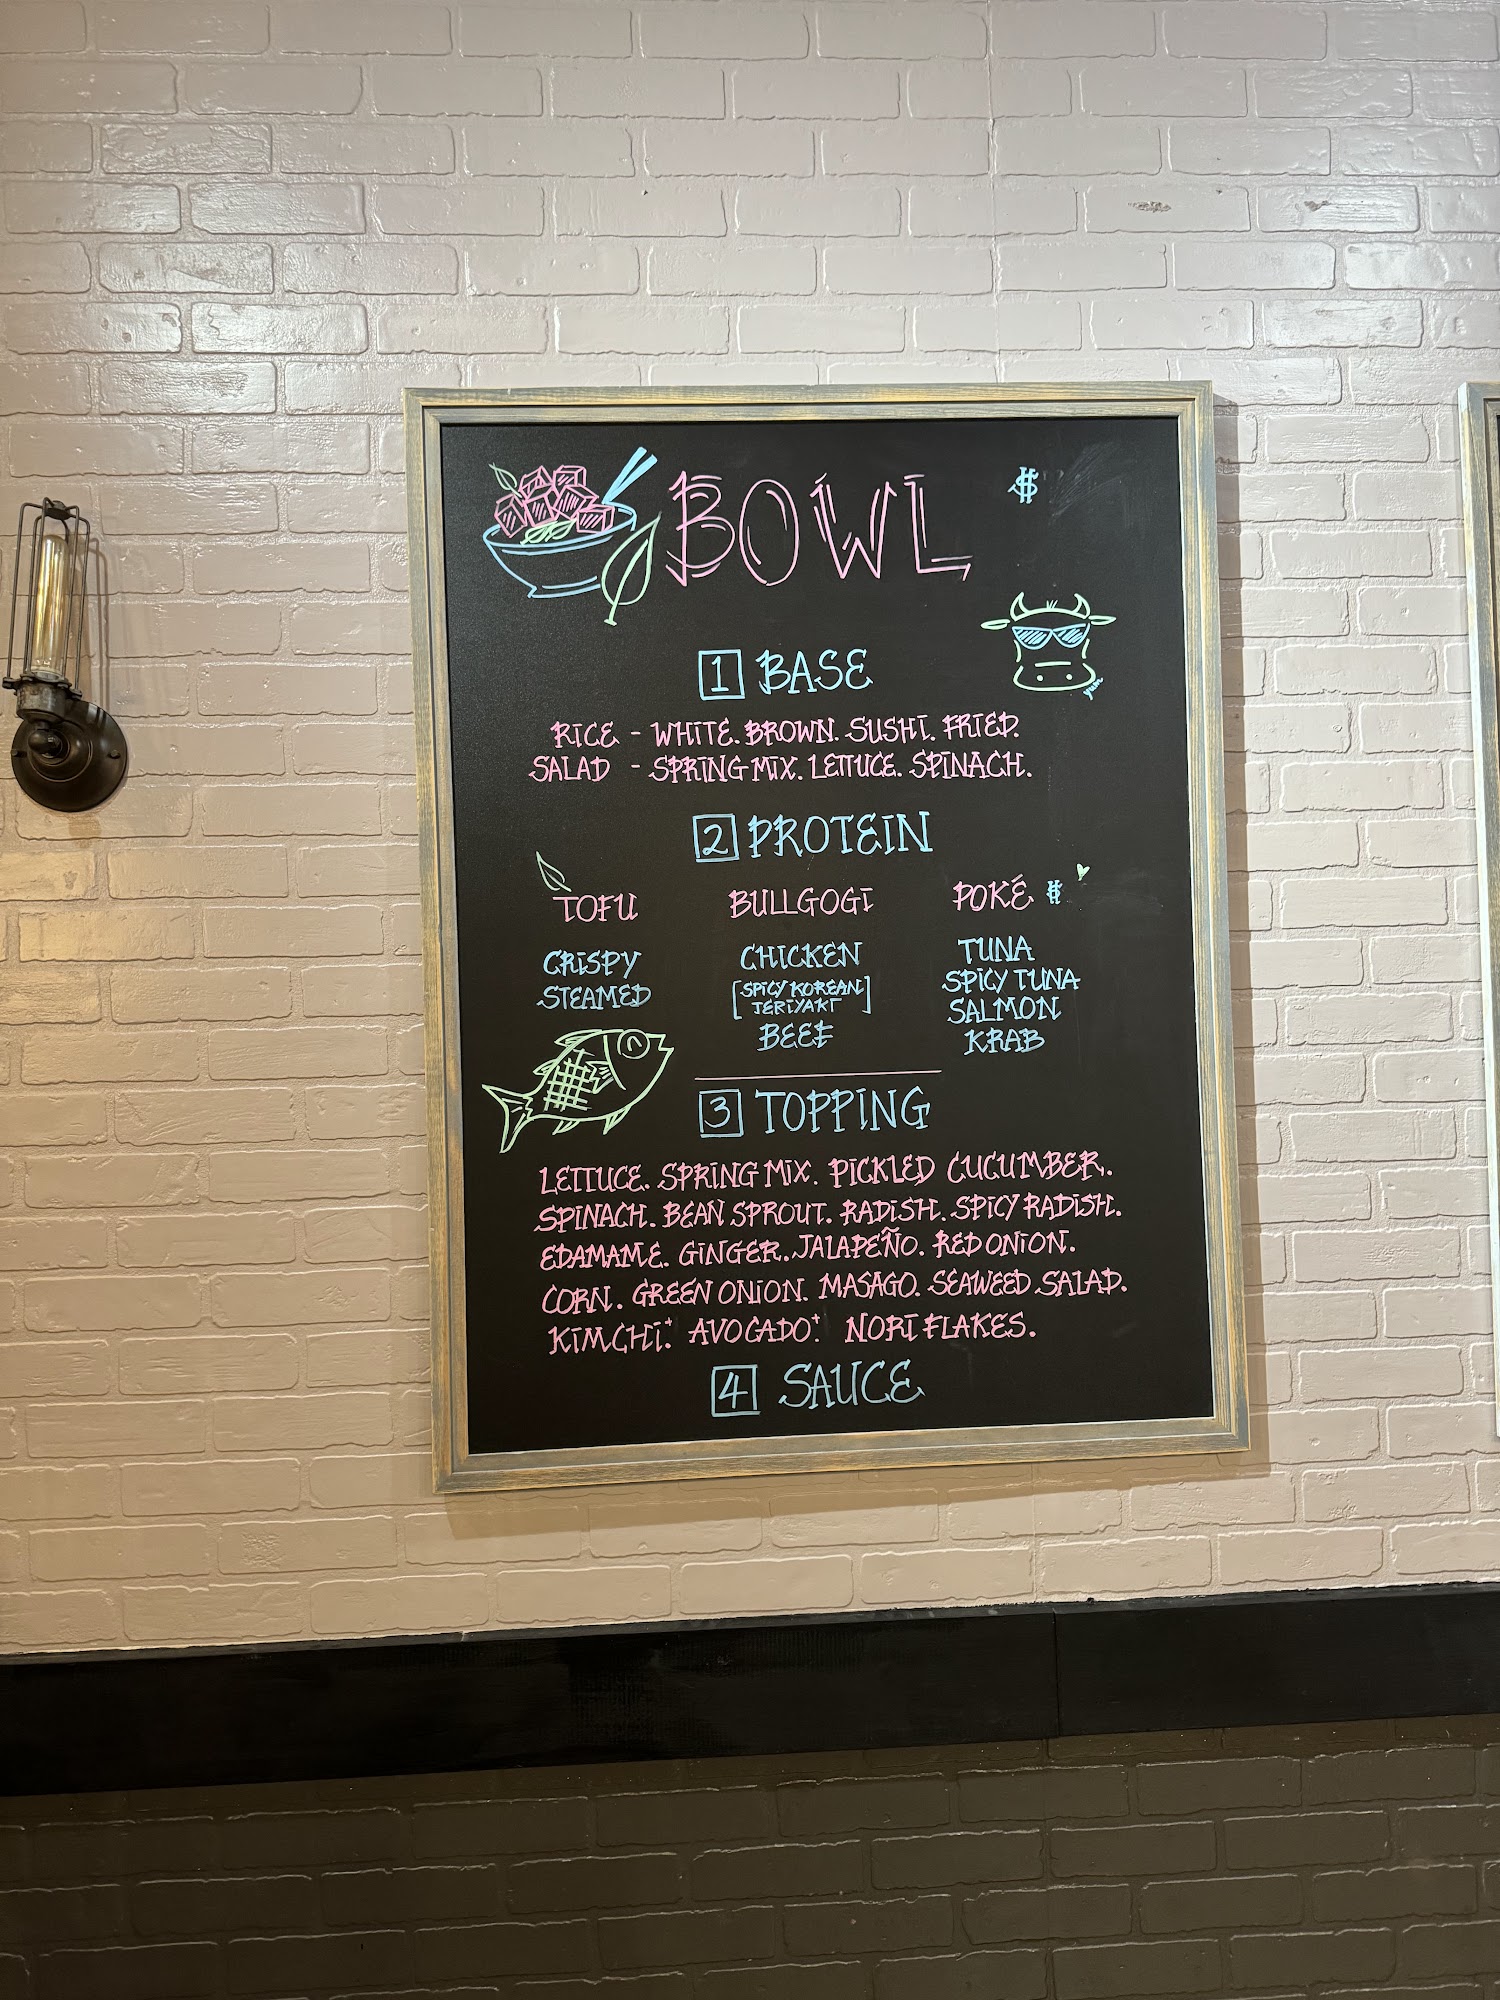 BOWL $
1 BASE
yum
RICE - WHITE. BROWN. SUSHI. FRIED.
SALAD - SPRING MIX. LETTUCE. SPINACH.
2 PROTEIN
TOFU BULLGOGI POKÉ $
CRISPY CHICKEN TUNA
STEAMED [SPICY KOREAN SPICY TUNA
TERIYAKI] SALMON
BEEF KRAB
3 TOPPING
LETTUCE. SPRING MIX. PICKLED CUCUMBER.
SPINACH. BEAN SPROUT. RADISH. SPICY RADISH.
EDAMAME. GINGER. JALAPEÑO. RED ONION.
CORN. GREEN ONION. MASAGO. SEAWEED SALAD.
KIMCHI+. AVOCADO+. NORI FLAKES.
4 SAUCE